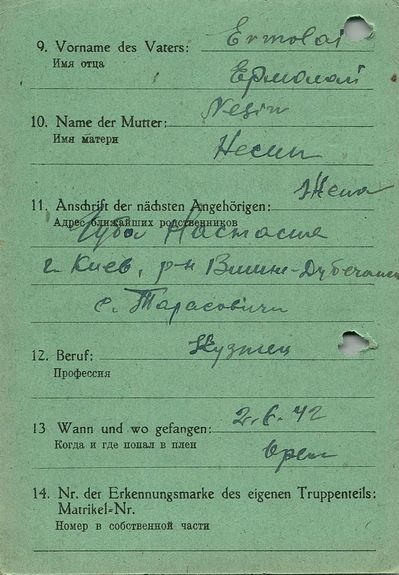 9. Vorname des Vaters: Ermolai
Имя отца Ермолай
10. Name der Mutter: Nesin
Имя матери Несин
Жена
11. Anschrift der nächsten Angehörigen:
Адрес ближайших родственников
Настасия
г. Киев, р-н
с. Тарасовичи
12. Beruf: Кузнец
Профессия
13 Wann und wo gefangen: 2.6.42
Когда и где попал в плен Орел
14. Nr. der Erkennungsmarke des eigenen Truppenteils:
Matrikel-Nr.
Номер в собственной части